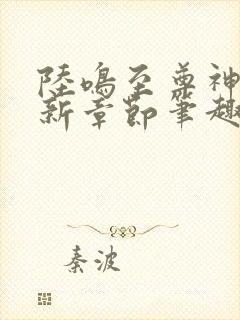 陸鳴至尊神
新章節筆趣
秦波